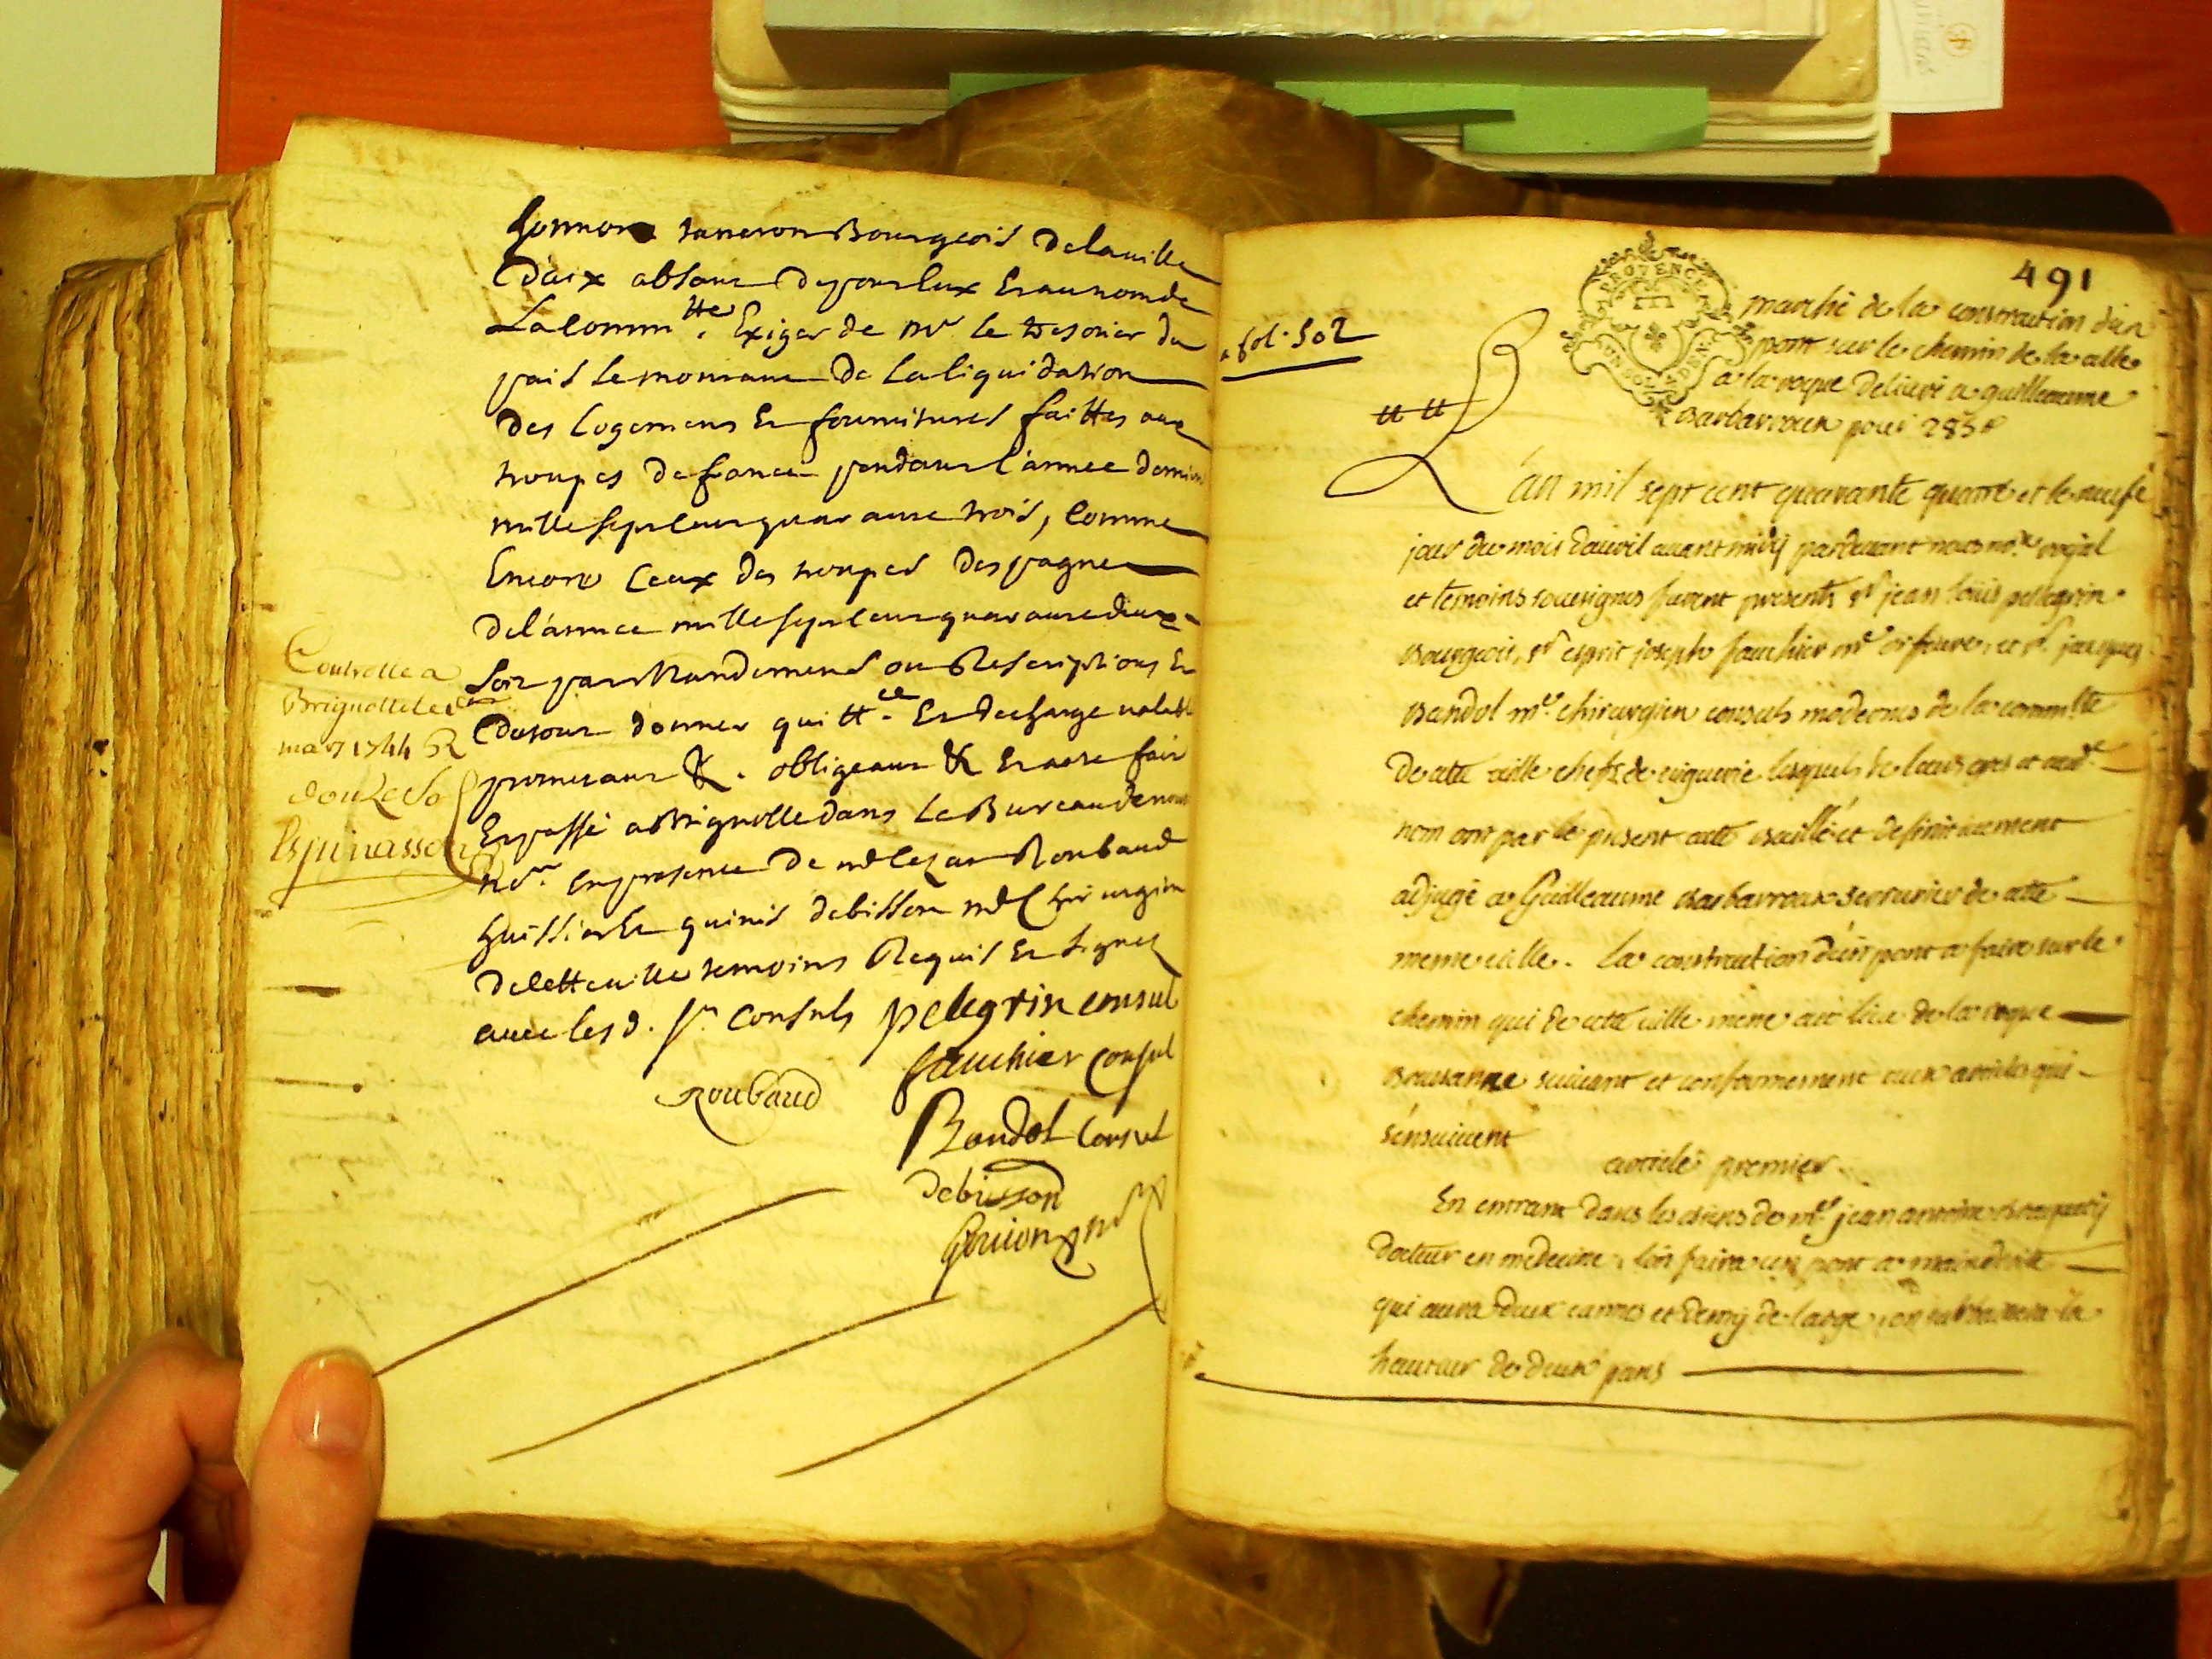 Bourgeois de la ville
d'aix absant de pour eux Et au nom de
La comm.tte Exiger de mr le tresorier du
pais le montant de la liquidation
des logemens Et fournitures faittes aux
troupes de france pendant l'annee derniere
mille sept cent quarante trois, comme
Encore ceux des troupes despagne
de l'annee mille sept cent quarante deux
soit par Mandements ou Rescriptions Et
du tout donner quitt.ce Et decharge valable
promettant &. obligeant & Et acte fait
Et passé a Brignolle dans le Bureau de nous
nore. En presence de me Roubaud
huissier Et debisson me chirurgien
de cette ville temoins Requis Et signez
avec les d. srs consuls pelegrin consul
fauchier consul
Roubaud
Bandol consul
debisson
Controlle a
Brignolle le
mars 1744 R
douze so
Espinasse
fol. 502
491
PROVENCE
marché de la construction d'un
pont sur le chemin de la celle
a la roque delivré a guilleaume
Barbarroux pour 285 #
L'an mil sept cent quarante quatre et le neufe
jour du mois d'avril avant midy pardevant nous nore. royal
et temoins soussignes furent presents sr jean loüis pellegrin
Bourgeois, sr esprit joseph fauchier me orfeuvre, et sr. jacques
Bandol me. chirurgien consuls modernes de la comm.tte
De cette ville chefs de viguerie lesquels de leurs gres et aud.
nom ont par le present acte baillé et definitivement
adjugé a Guilleaume Barbarroux serrurier de cette
meme ville. La construction d'un pont a faire sur le
chemin qui de cette ville mene au lieu de la roque
Boussanne suivant et conformement aux articles qui
s'ensuivent
article premier.
En entrant dans les biens de me. jean antoine Braquety
docteur en medecine, l'on faira un pont a main droite
qui aura deux cannes et demy de large, on la
hauteur de deux pans